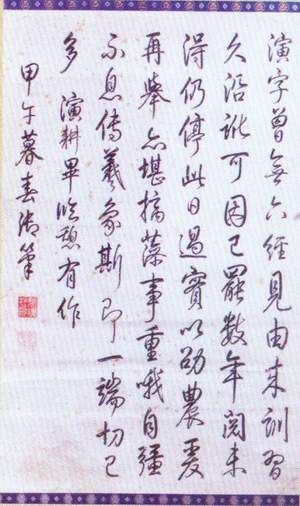 演字曾無六經見由來訓習
久沿訛可因已罷数年閲未
得仍停此日過實以劭農爰
再舉亦堪摛藻事重哦自彊
不息傳羲象斯即一端切己
多 演耕畢臨憩有作
甲午暮春御筆